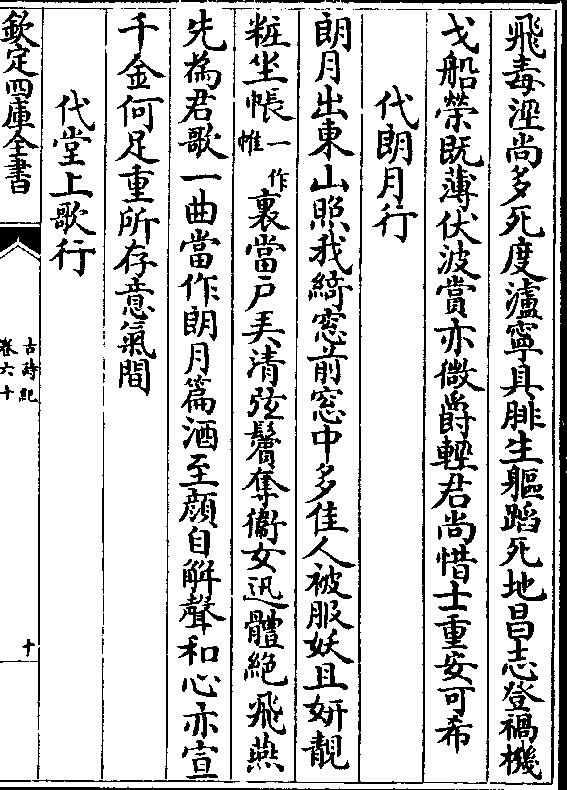 飛毒淫尚多死度瀘寧具腓生軀蹈死地昌志登禍機
戈船榮既薄伏波賞亦微爵輕君尚惜士重安可希
代朗月行
朗月出東山照我綺窓前窓中多佳人被服妖且妍靚
粧坐帳一作帷裏當戸弄清弦鬢奪衞女迅體絶飛燕
先為君歌一曲當作朗月篇酒至顔自解聲和心亦宣
千金何足重所存意氣間
代堂上歌行
欽定四庫全書
古詩紀
卷六十
十